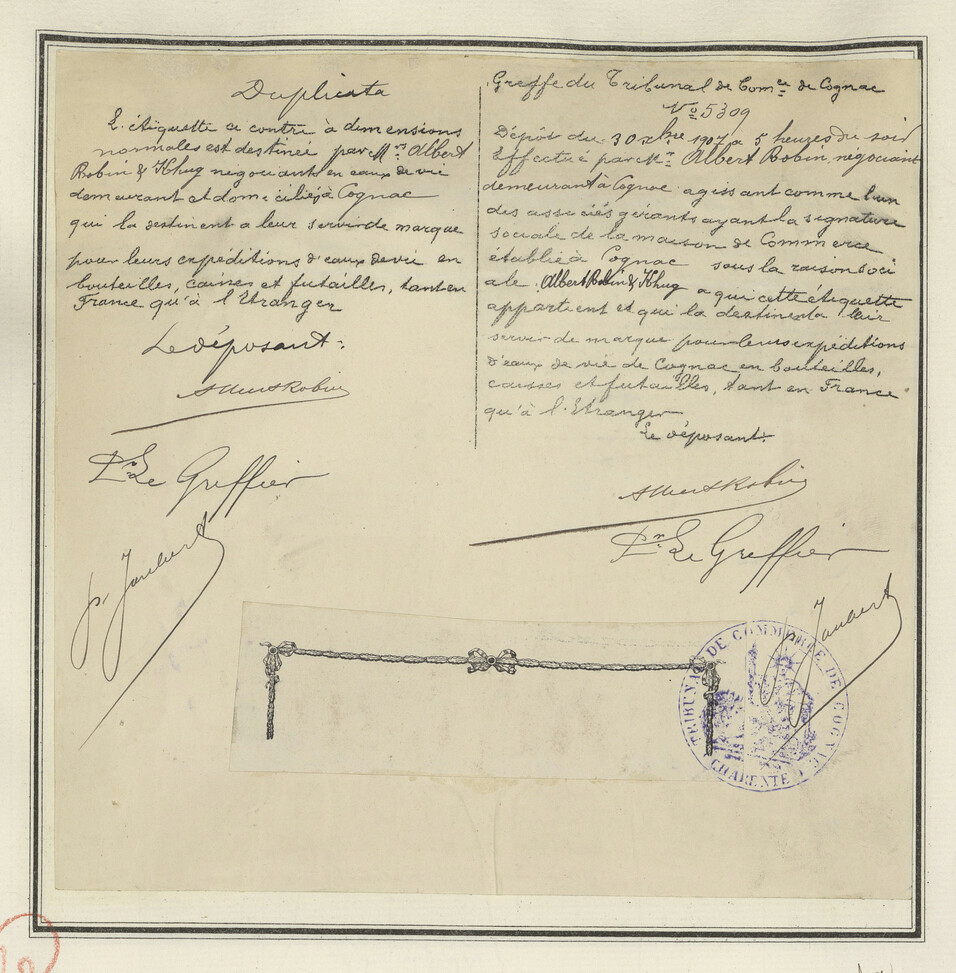 Duplicata
L'étiquette ci contre à dimensions
normales est destinée par Mrs Albert
Robin & Khug négociants en eaux de vie
demeurant et domiciliés à Cognac
qui la destinent a leur servir de marque
pour leurs expéditions d'eaux de vie en
bouteilles, caisses et futailles, tant en
France qu'à l'Etranger
Le déposant.
Albert Robin
Pr Le Greffier
Jaubert
Greffe du Tribunal de Comce de Cognac
No 5309
Dépôt du 30 xbre 1907 a 5 heures du soir
Effectué par Mr Albert Robin, négociant
demeurant à Cognac agissant comme l'un
des associés gérants ayant la signature
sociale de la maison de Commerce
établie à Cognac sous la raison soci
ale Albert Robin & Khug a qui cette étiquette
appartient et qui la destinent a leur
servir de marque pour leurs expéditions
d'eaux de vie de Cognac en bouteilles,
caisses et futailles, tant en France
qu'à l'Etranger
Le déposant.
Albert Robin
Pr Le Greffier
Jaubert
TRIBUNAL DE COMMERCE DE COGNAC
CHARENTE